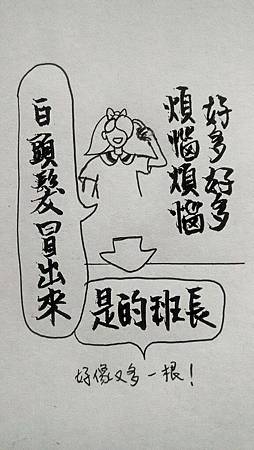 好多好多
煩惱煩惱
白頭髮冒出來
是的班長
好像又多一根！